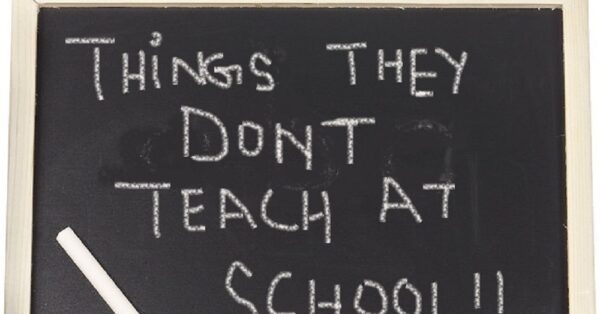 THiNGS THEY
DONT
TEACH AT
SCHOOL!!